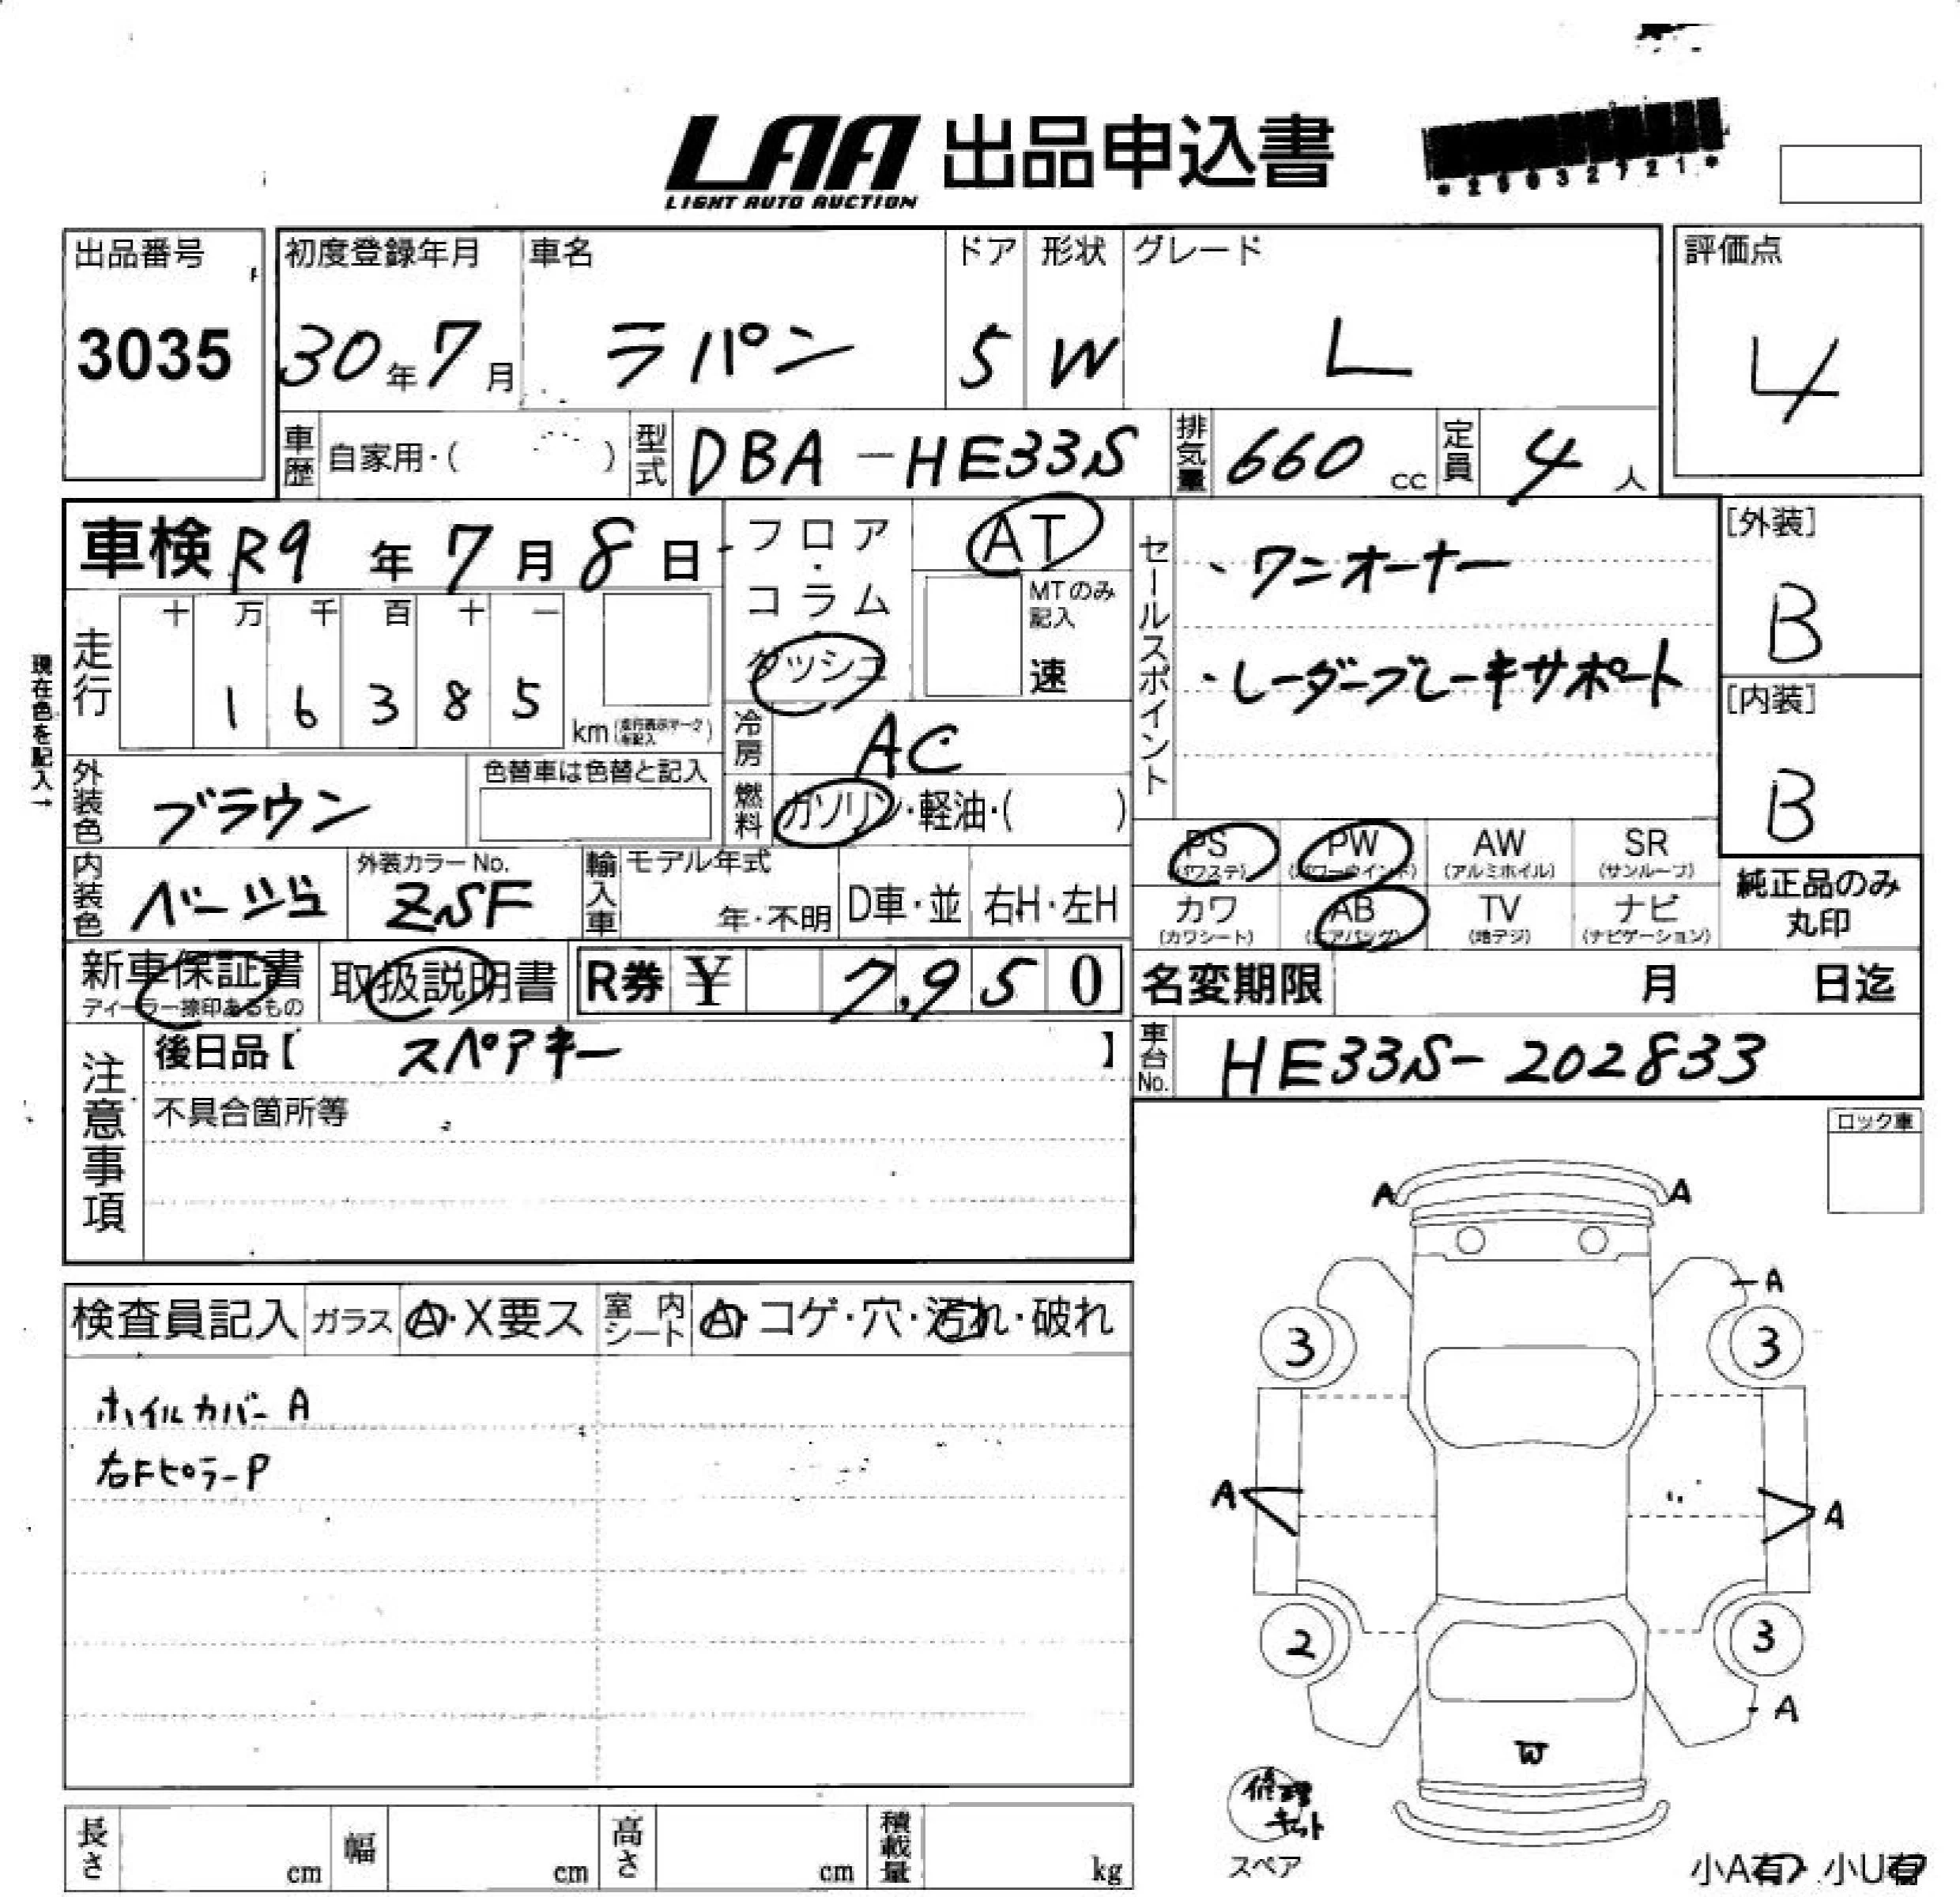 LAA 出品申込書
LIGHT AUTO AUCTION
*25032721*
出品番号 初度登録年月 車名 ドア 形状 グレード 評価点
3035 30年7月 ラパン 5 W L 4
車歴 自家用・( ) 型式 DBA-HE33S 排気量 660 cc 定員 4 人
車検 R9年7月8日 フロア・コラム・ダッシュ AT
MTのみ記入 速
セールスポイント
・ワンオーナー
・レーダーブレーキサポート
[外装]
B
[内装]
B
現在色を記入→
走行 十 万 千 百 十 一
1 6 3 8 5 km (走行表示マーク有記入)
冷房 AC
外装色 ブラウン 色替車は色替と記入 燃料 ガソリン・軽油・( )
PS (パワステ) PW (パワーウインド) AW (アルミホイル) SR (サンルーフ)
カワ (カワシート) AB (エアバッグ) TV (地デジ) ナビ (ナビゲーション)
純正品のみ丸印
内装色 ベージュ 外装カラーNo. ZSF 輸入車 モデル年式 年・不明 D車・並 右H・左H
新車保証書 ディーラー捺印あるもの 取扱説明書 R券 ¥ 7,950 名変期限 月 日迄
車台No. HE33S-202833
注意事項
後日品【 スペアキー 】
不具合箇所等
ロック車
検査員記入 ガラス A・X要ス 室内シート A・コゲ・穴・汚れ・破れ
ホイルカバーA
右FピラーP
A A
A
3 3
A A
2 3
A
W
修理キット
スペア
小A有 小U有
長さ cm 幅 cm 高さ cm 積載量 kg